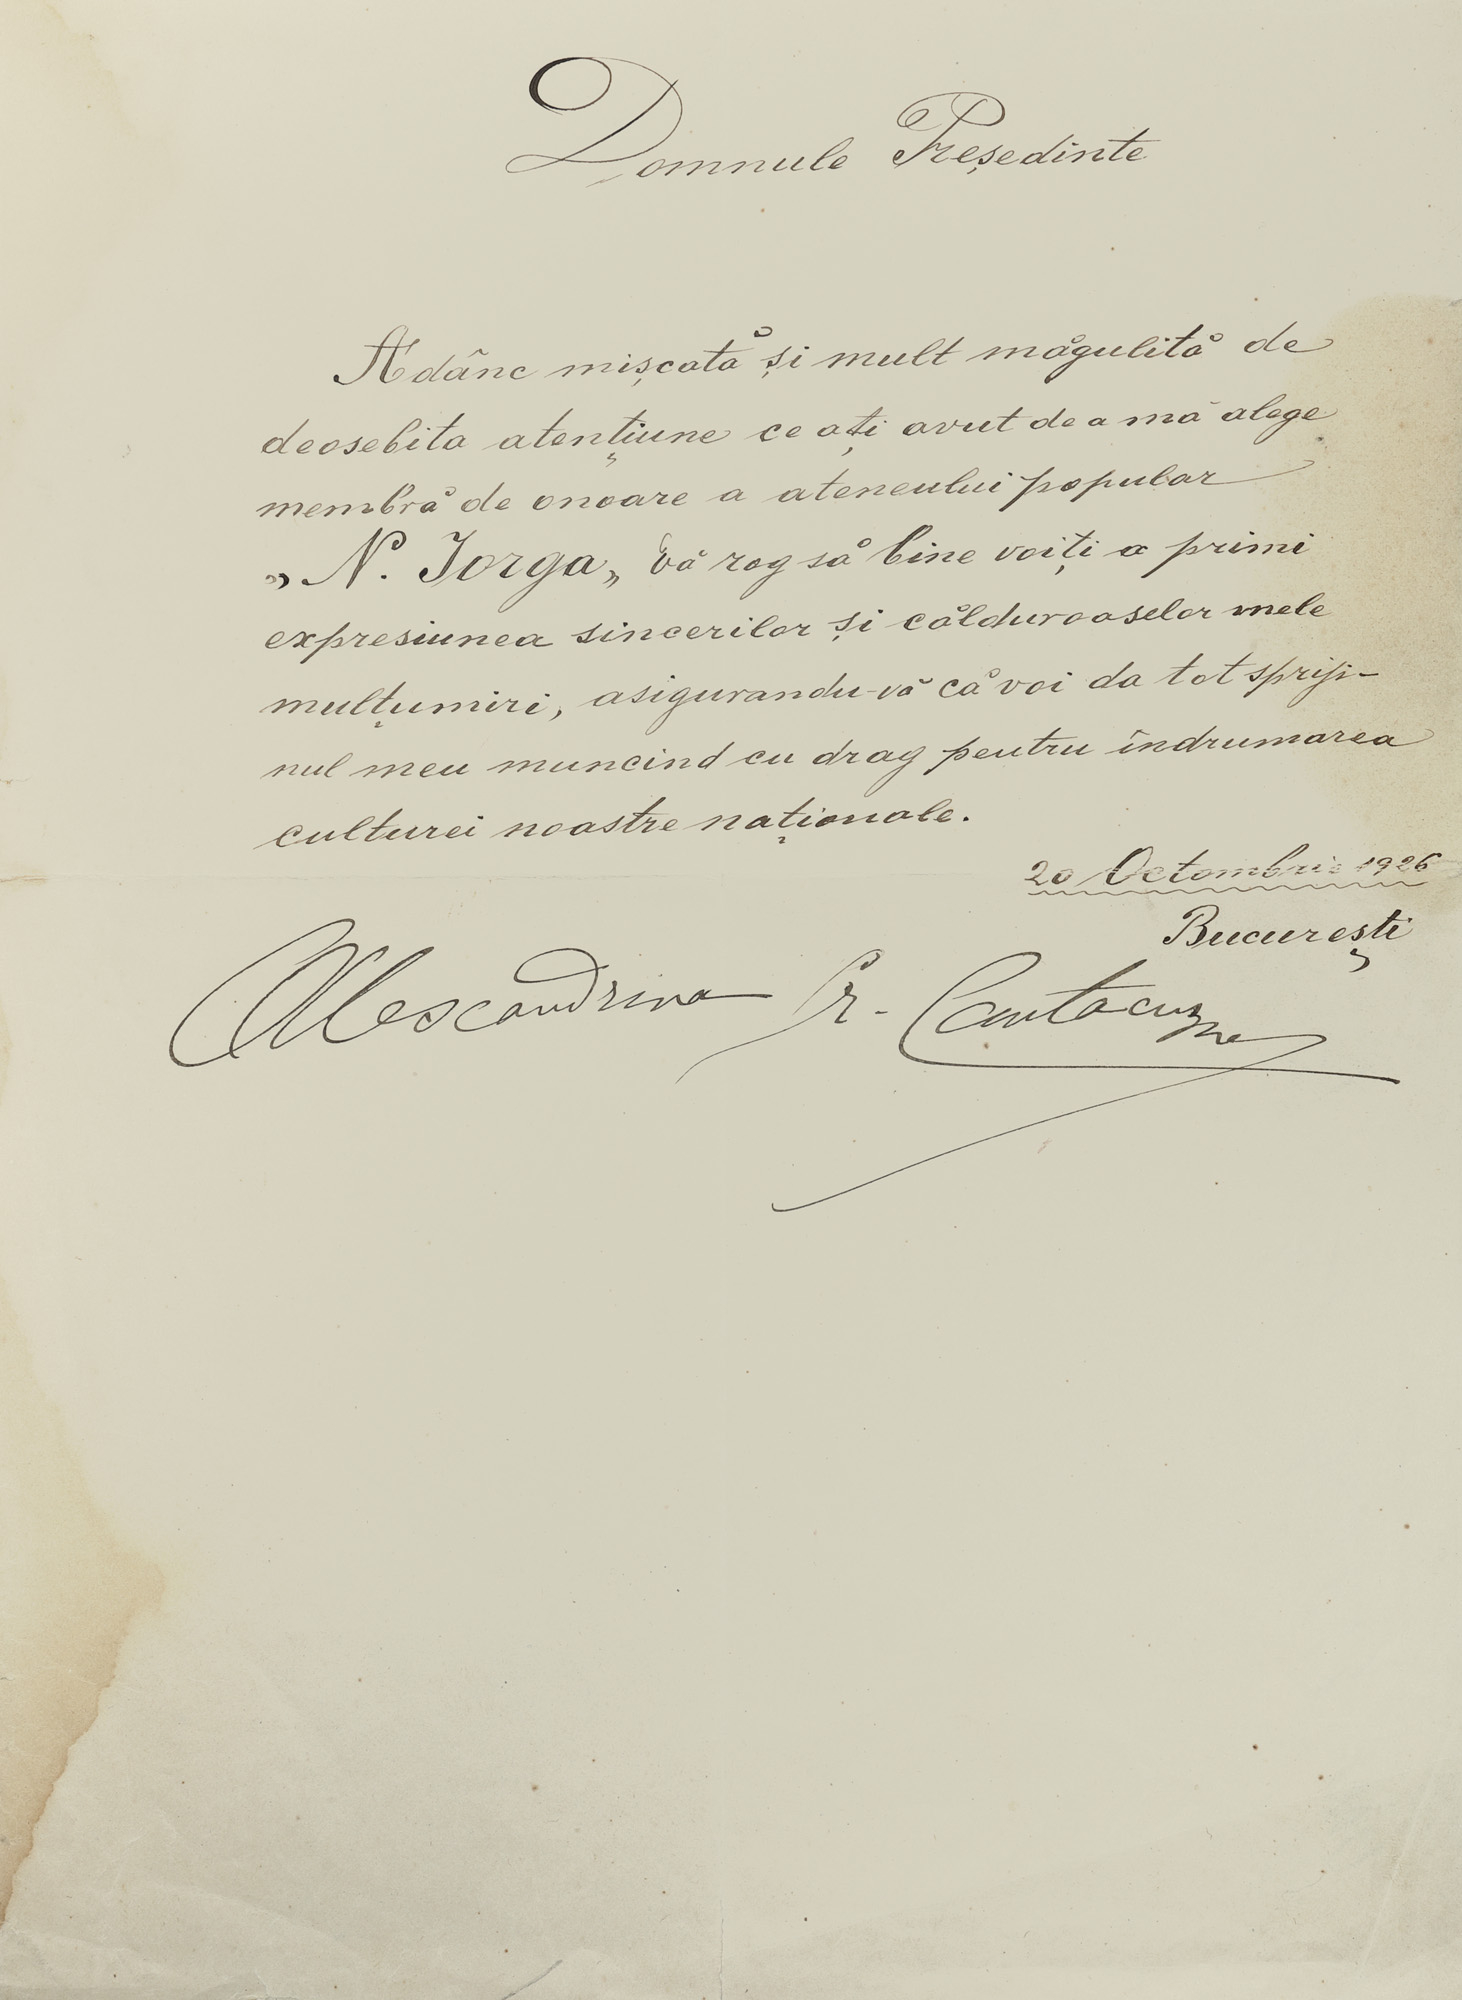 Domnule Președinte
Adânc mișcată și mult măgulită de
deosebita atențiune ce ați avut de a mă alege
membră de onoare a ateneului popular
„N. Iorga„ vă rog să bine voiți a primi
expresiunea sincerilor și călduroaselor mele
mulțumiri, asigurandu-vă că voi da tot spriji-
nul meu muncind cu drag pentru îndrumarea
culturei noastre naționale.
20 Octombrie 1926
București
Alexandrina Gr. Cantacuzne